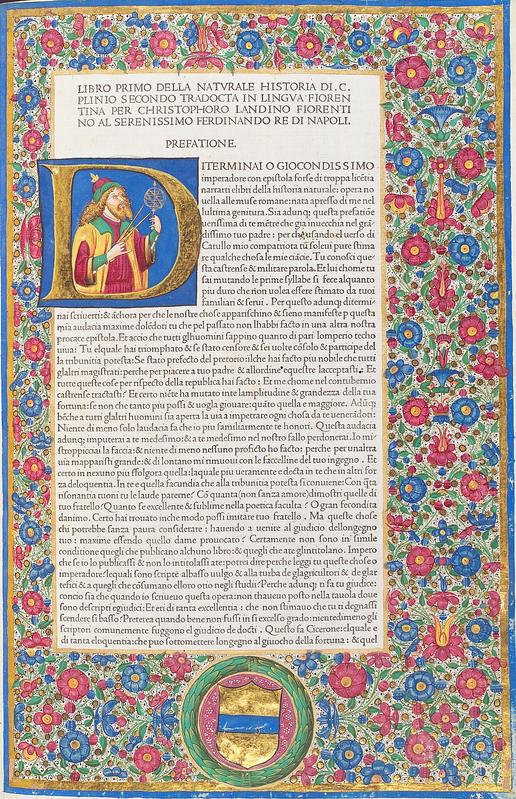 LIBRO PRIMO DELLA NATVRALE HISTORIA DI. C.
PLINIO SECONDO TRADOCTA IN LINGVA FIOREN
TINA PER CHRISTOPHORO LANDINO FIORENTI
NO AL SERENISSIMO FERDINANDO RE DI NAPOLI.
PREFATIONE.
DITERMINAI O GIOCONDISSIMO
imperadore con epistola forse di troppa licẽtia
narrarti elibri della historia naturale: opera no
uella alle muse romane: nata apresso di me nel
lultima genitura. Sia adunq; questa prefatiõe
uerissima di te mẽtre che gia inuecchia nel grã
dissimo tuo padre: per chusando el uerso di
Catullo mio compatriota tu soleui pure stima
re qualche chosa le mie ciãcie. Tu conosci que
sta castrense & militare parola. Et lui chome tu
sai mutando le prime syllabe si fece alquanto
piu duro che non uolea essere stimato da tuoi
familiari & serui. Per questo adunq; ditermi
nai scriuetti: & ãchora per che le nostre chose apparischino & sieno manifeste p questa
mia audacia maxime dolẽdoti tu che pel passato non lhabbi facto in una altra nostra
procace epistola. Et accio che tutti glhuomini sappino quanto di pari lomperio techo
uiua: Tu elquale hai triomphato & se stato censore & sei uolte cõsolo & participe del
la tribunitia potesta: Se stato prefecto del pretorio: ilche hai facto piu nobile che tutti
glaltri magistrati: perche per piacere a tuo padre & allordine equestre lacceptasti. Et
tutte queste cose per rispecto della republica hai facto: Et me chome nel contubernio
castrense tractasti? Et certo niẽte ha mutato in te lamplitudine & grandezza della tua
fortuna: se non che tanto piu possi & uogla giouare: quãto quella e maggiore. Adũq;
bẽche a tutti glaltri huomini sia aperta la uia a impetrare ogni chosa da te ueneradoti:
Niente di meno solo laudacia fa che io piu familiarmente te honori. Questa audacia
adunq; imputerai a te medesimo: & a te medesimo nel nostro fallo perdonerai. Io mi
stropicciai la faccia: & niente di meno nessuno profecto ho facto: perche per unaltra
uia mapparisti grande: & di lontano mi rimuoui con le faccelline del tuo ingegno. Et
certo in nexuno piu folgora quella: laquale piu ueramente e decta in te che in altri for
za deloquentia. In te e quella facundia che alla tribunitia potesta si conuiene: Con q̃ta
risonantia tuoni tu le laude paterne? Cõ quanta (non sanza amore) dimostri quelle di
tuo fratello? Quanto se excellente & sublime nella poetica faculta? O gran fecondita
danimo. Certo hai trouato inche modo possi imitare tuo fratello. Ma queste chose
chi potrebbe sanza paura considerare: hauendo a uenire al giudicio dellongegno
tuo: maxime essendo quello dame prouocato? Certamente non sono in simile
conditione quegli che publicano alchuno libro: & quegli che ate glintitolano. Impero
che se io lo publicassi & non lo intitolassi ate: potrei dire perche leggi tu queste chose o
imperadore? lequali sono scripte albasso uulgo & alla turba de glagricultori & de glar
tefici & a quegli che cõsumano elloro otio negli studii? Perche adunq; ti fa tu giudice:
concio sia che quando io scriueuo questa opera: non thaueuo posto nella tauola doue
sono descripti egiudici: Et eri di tanta excellentia: che non stimauo che tu ti degnassi
scendere si basso? Preterea quando bene non fussi in excelso grado: nientedimeno gli
scriptori comunemente fuggono el giudicio de docti. Questo fa Cicerone: elquale e
di tanta eloquentia: che puo sottomettere longegno al giuocho della fortuna: & quel